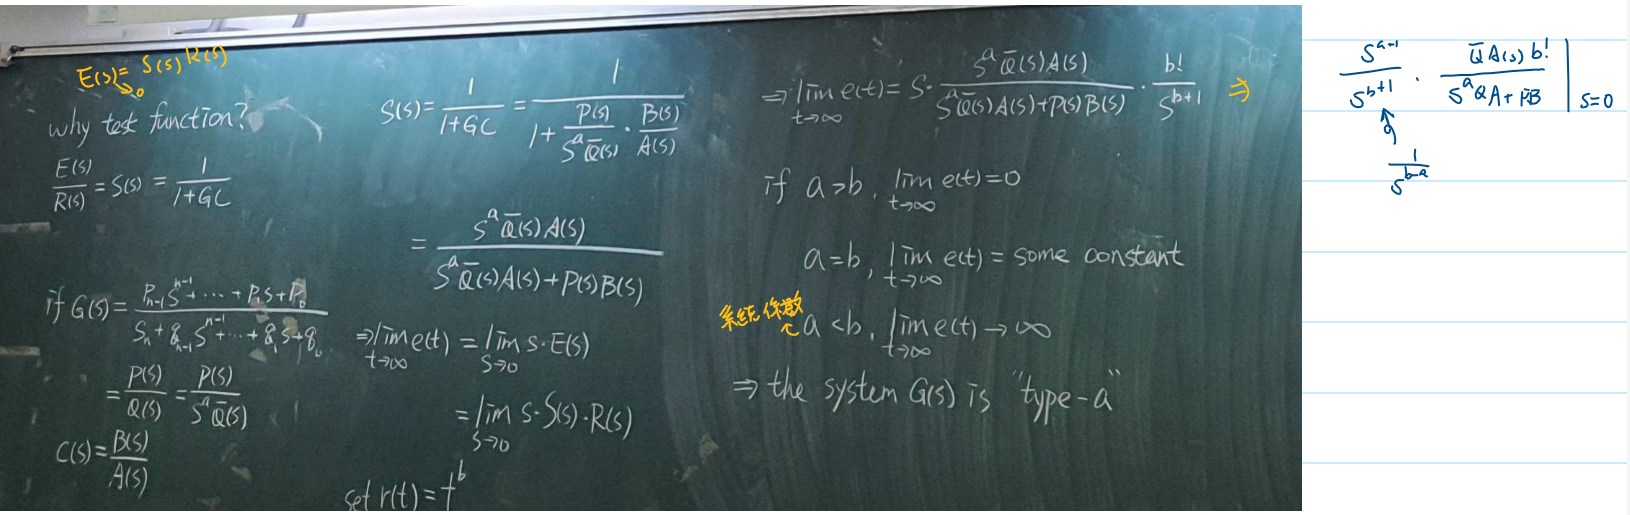 E(s) = S(s) R(s)
→0
why test function?
E(s)/R(s) = S(s) = 1/(1+GC)
if G(s) = (P_{n-1}S^{n-1} + ⋯ + P_1 S + P_0)/(S_n + q_{n-1} S^{n-1} + ⋯ + q_1 S + q_0)
= P(s)/Q(s) = P(s)/(S^a Q̄(s))
C(s) = B(s)/A(s)
S(s) = 1/(1+GC) = 1/(1 + P(s)/(S^a Q̄(s)) · B(s)/A(s))
= S^a Q̄(s)A(s)/(S^a Q̄(s)A(s)+P(s)B(s))
⇒ lim_{t→∞} e(t) = lim_{s→0} s·E(s)
= lim_{s→0} s·S(s)·R(s)
set r(t) = t^b
⇒ lim_{t→∞} e(t) = S · S^a Q̄(s)A(s)/(S^a Q̄(s)A(s)+P(s)B(s)) · b!/S^{b+1} ⇒
if a>b, lim_{t→∞} e(t) = 0
a=b, lim_{t→∞} e(t) = some constant
系統係數
a<b, lim_{t→∞} e(t) → ∞
⇒ the system G(s) is "type-a"
S^{a+1}/S^{b+1} · Q̄A(s)b!/(S^a QA+PB) |_{S=0}
1/S^{b-a}